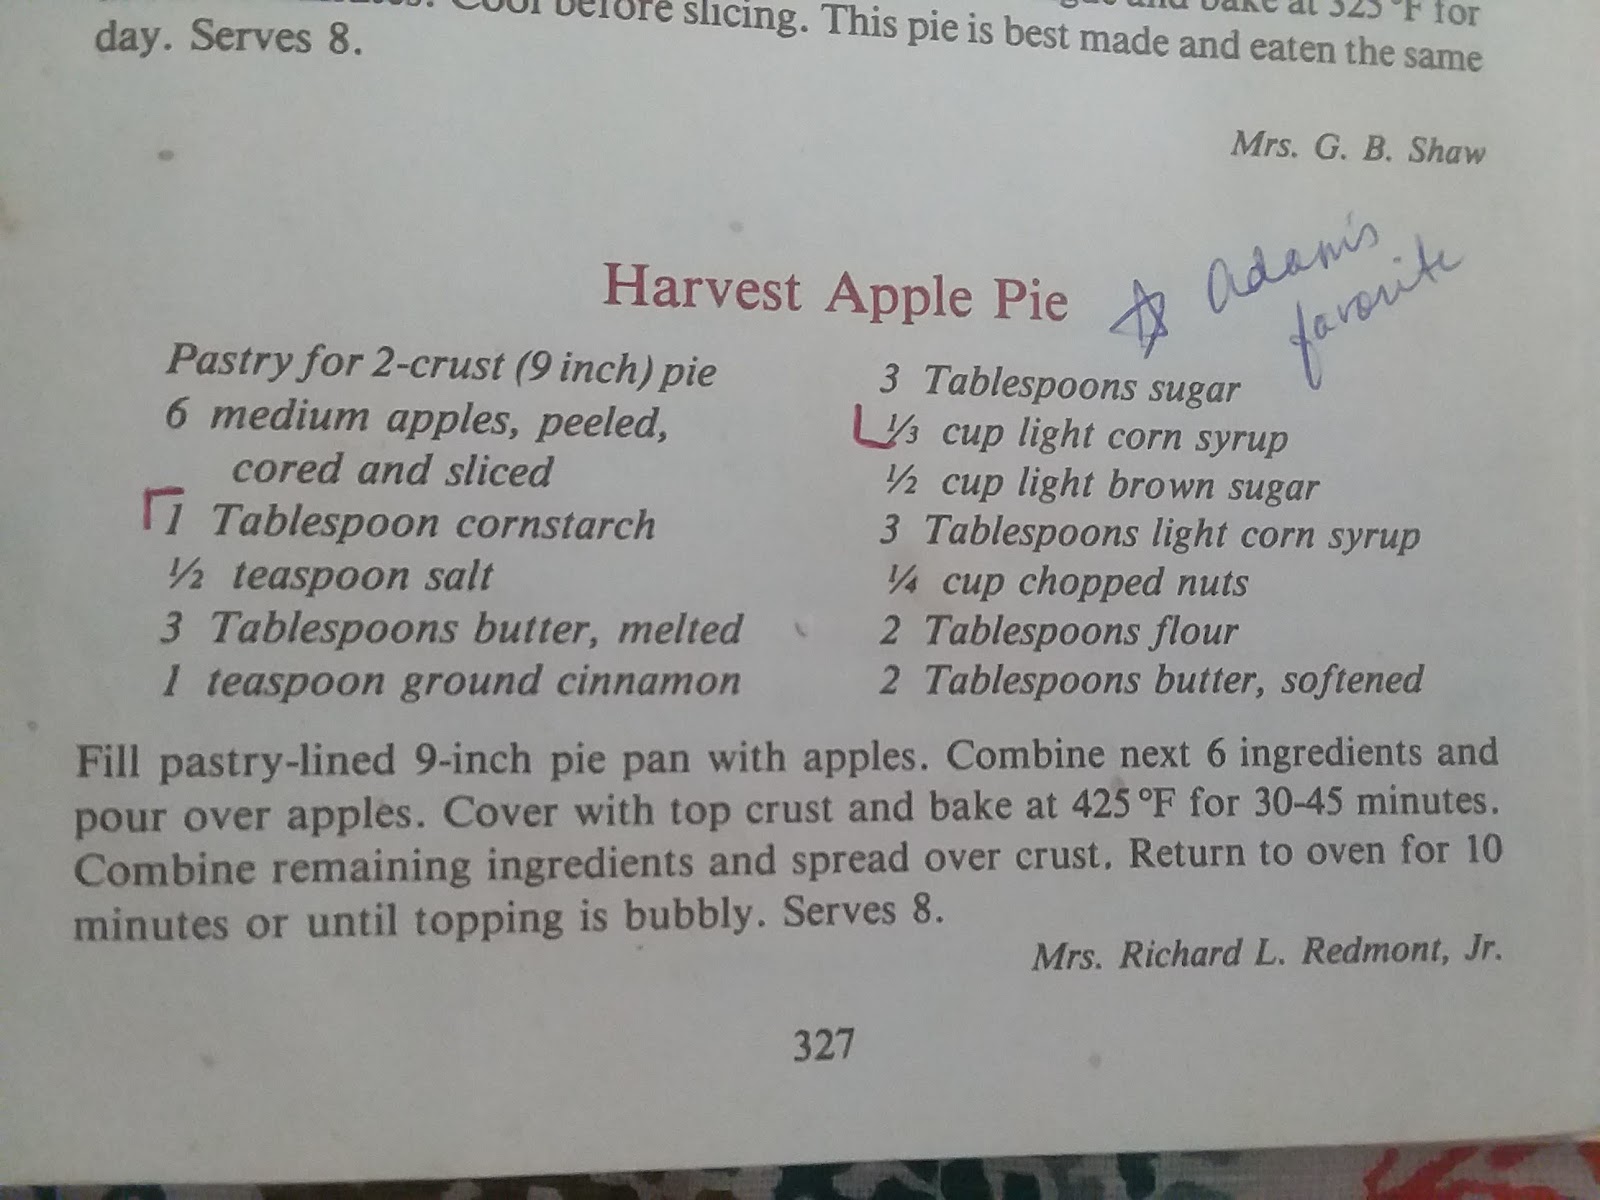 Cool before slicing. This pie is best made and eaten the same
bake at 325 °F for
day. Serves 8.
Mrs. G. B. Shaw
Harvest Apple Pie
☆ Adam's
favorite
Pastry for 2-crust (9 inch) pie
6 medium apples, peeled,
cored and sliced
1 Tablespoon cornstarch
½ teaspoon salt
3 Tablespoons butter, melted
1 teaspoon ground cinnamon
3 Tablespoons sugar
⅓ cup light corn syrup
½ cup light brown sugar
3 Tablespoons light corn syrup
¼ cup chopped nuts
2 Tablespoons flour
2 Tablespoons butter, softened
Fill pastry-lined 9-inch pie pan with apples. Combine next 6 ingredients and
pour over apples. Cover with top crust and bake at 425 °F for 30-45 minutes.
Combine remaining ingredients and spread over crust. Return to oven for 10
minutes or until topping is bubbly. Serves 8.
Mrs. Richard L. Redmont, Jr.
327